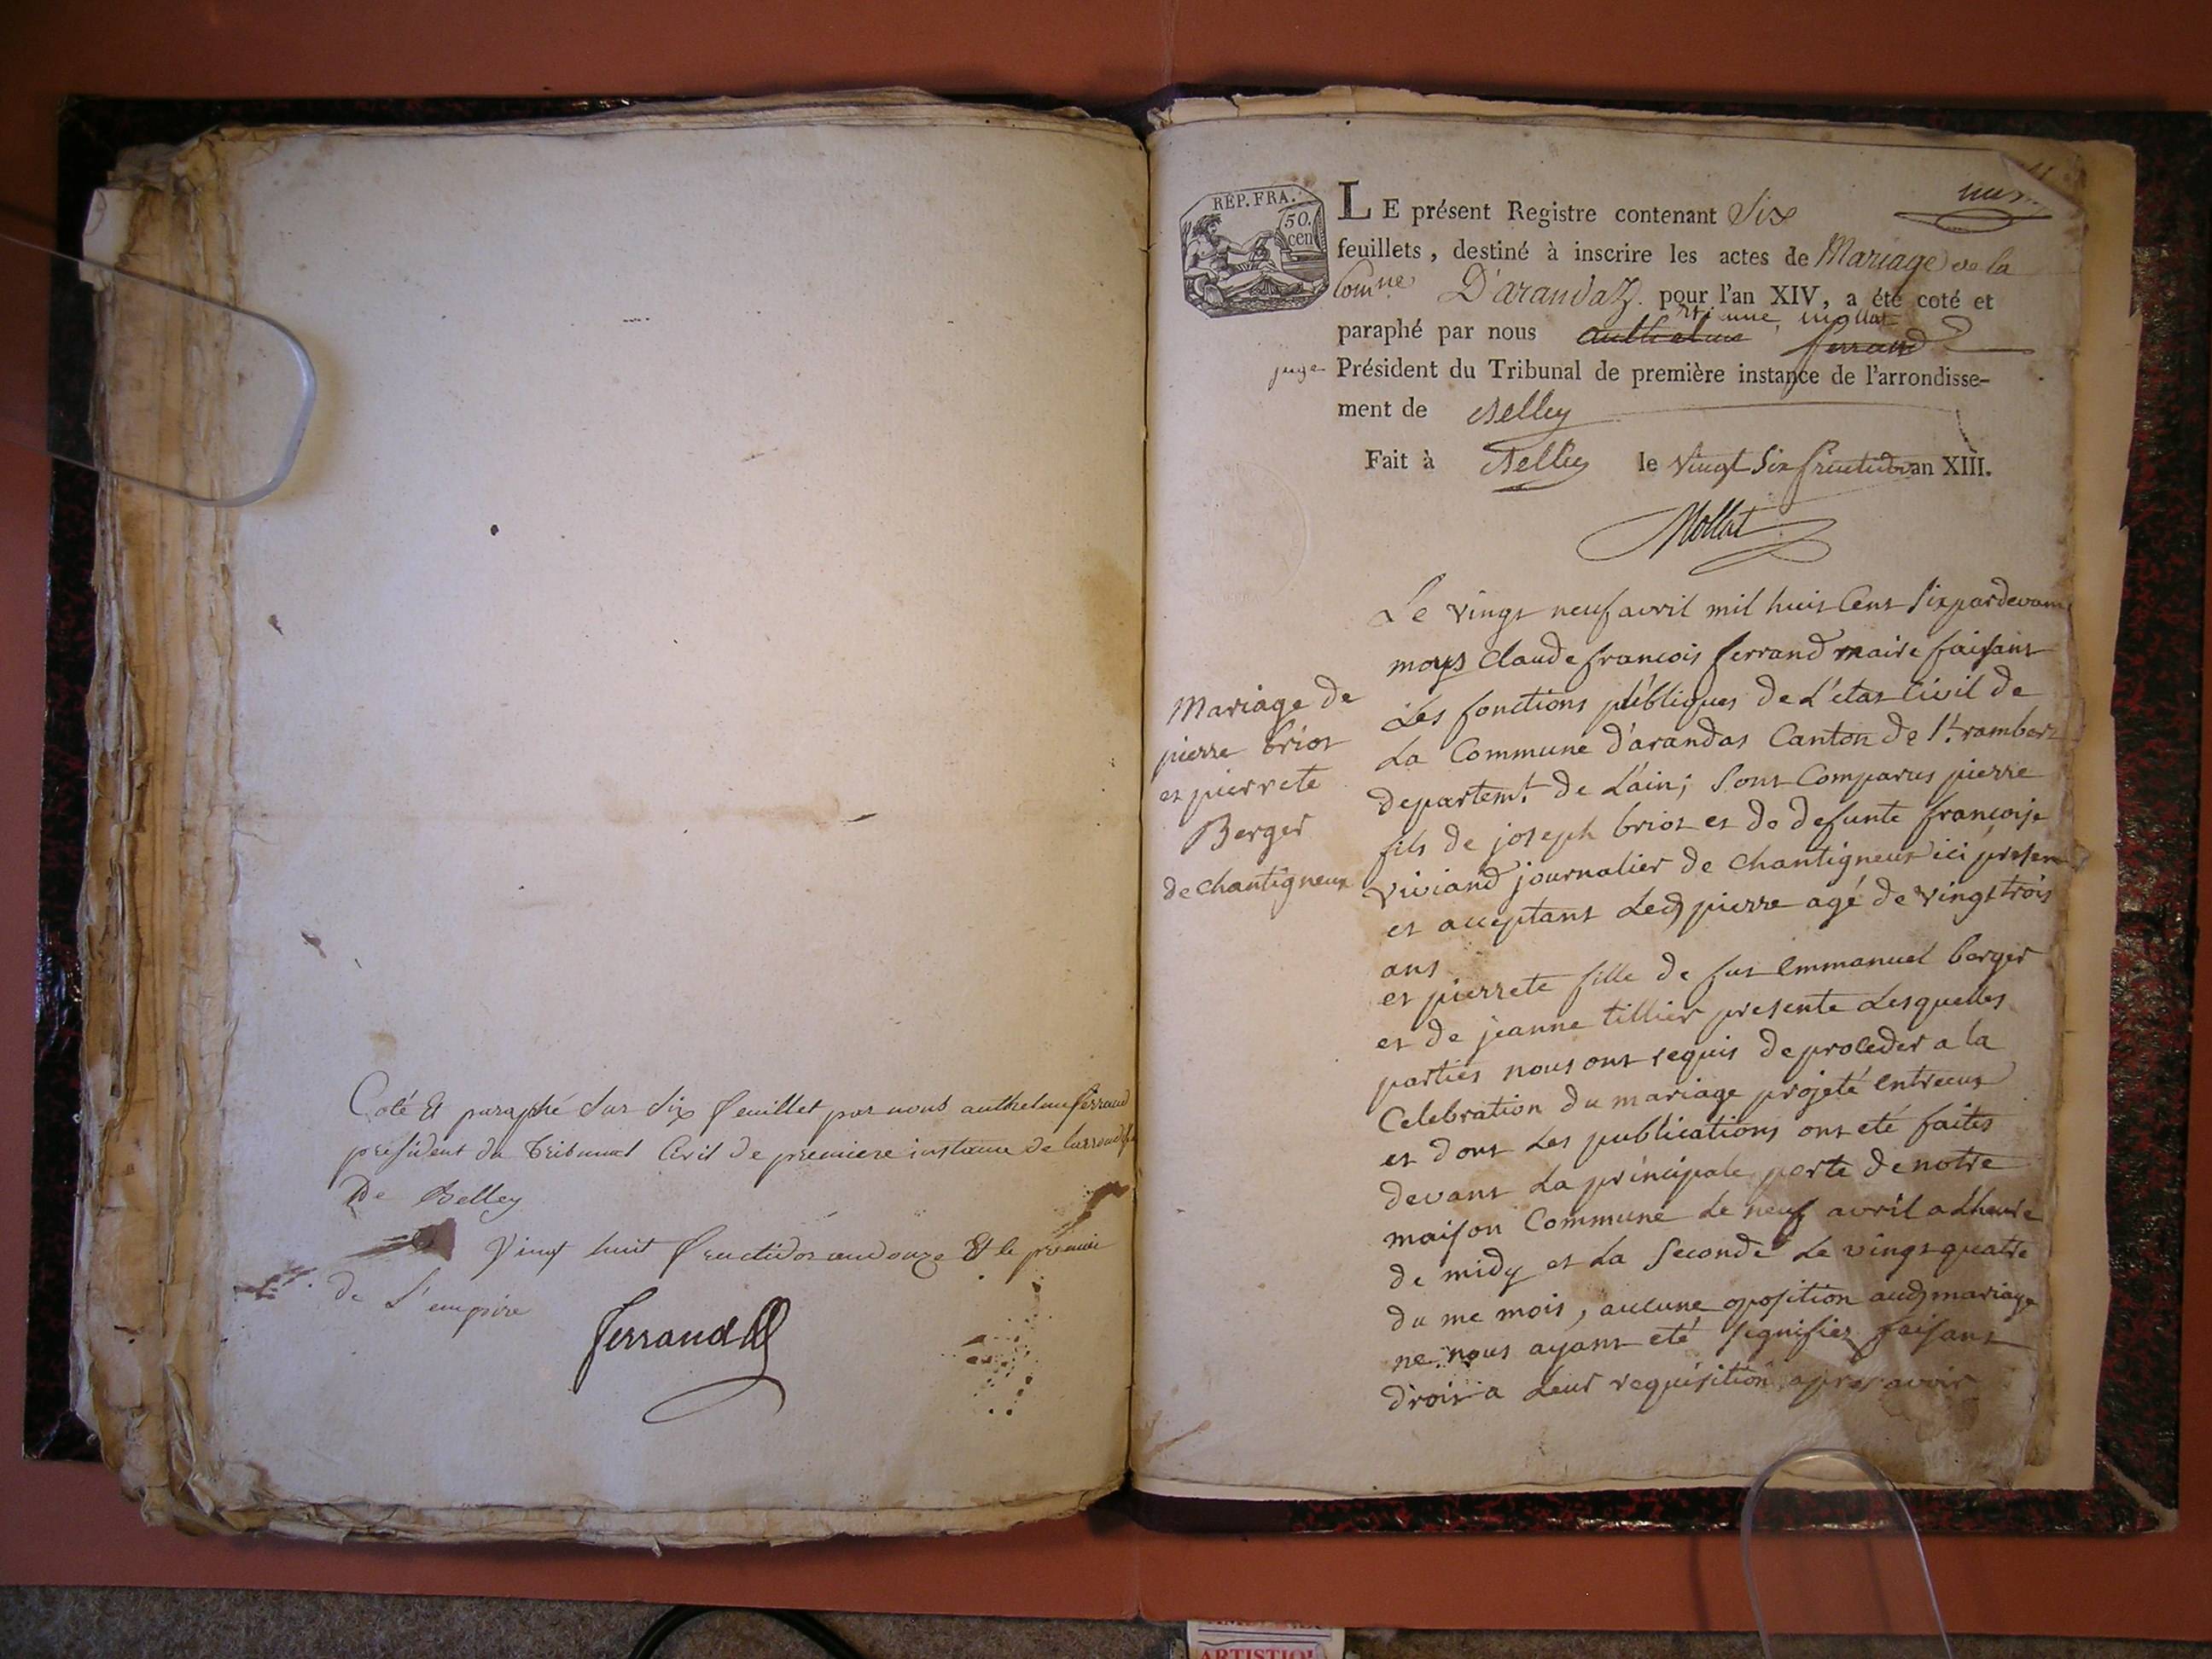 Coté Et paraphé Sur Six feuillet par nous anthelme ferrand
président du Tribunal Civil de premiere instance de
De Belley
Vingt huit fructidor an douze Et le premier
de L'empire
ferrand
RÉP. FRA.
50. cen
LE présent Registre contenant Six
feuillets, destiné à inscrire les actes de Mariage de la
Comne D'arandaz. pour l'an XIV, a été coté et
mollat
paraphé par nous anthelme ferrand
juge Président du Tribunal de première instance de l'arrondisse-
ment de Belley
Fait à Belley le Vingt Six fructidor an XIII.
Mollat
Mariage de
pierre briot
et pierrete
Berger
de chantigneux
Le vingt neuf avril mil huit Cent Six pardevant
moys Claude francois ferrand maire faisant
Les fonctions publiques de L'etat Civil de
La Commune d'arandas Canton de St. rambert
departemt. de L'ain; Sont Comparus pierre
fils de joseph briot et de defunte françoise
Viviand journalier de chantigneux ici present
et acceptant Led pierre agé de vingt trois
ans
et pierrete fille de fut Emmanuel berger
et de jeanne tillier presente Lesquelles
parties nous ont requis de proceder a la
Celebration du mariage projeté entreeux
et dont Les publications ont eté faites
devant La principale porte de notre
maison Commune Le neuf avril a Lheure
de midy et La Seconde Le vingt quatre
du me mois, aucune oposition aud mariage
ne nous ayant eté signifiez faisant
droit a Leur requisition apres avoir
ARTISTIQ